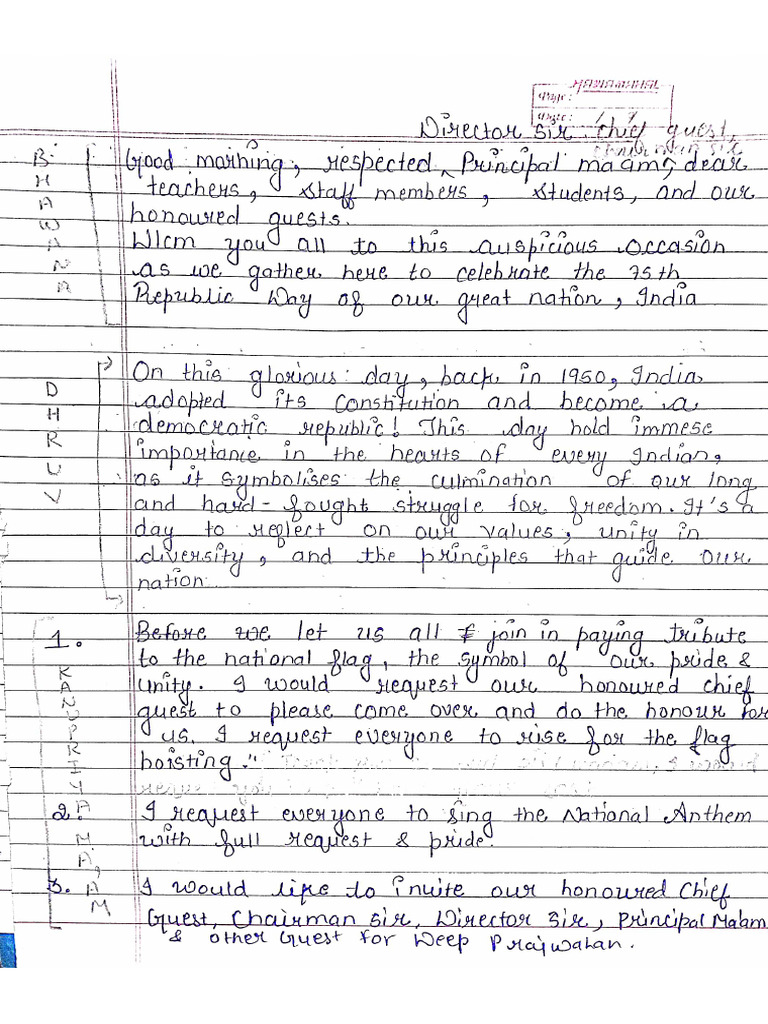 Director Sir, Chief guest,
Chairman Sir
Good marning, respected, Principal maam, dear
teachers, staff members, students, and our
honoured guests.
Wlcm you all to this auspicious occasion
as we gather here to celebrate the 75th
Republic Day of our great nation, India
BHAWANA
On this glorious day, back in 1950, India
adopted its constitution and become a
democratic republic! This day hold immese
importance in the hearts of every Indian,
as it symbolises the culmination of our long
and hard-fought struggle for freedom. It's a
day to reflect on our values, unity in
diversity, and the principles that guide our
nation
DHRUV
1. Before we let us all join in paying tribute
to the national flag, the symbol of our pride &
Unity. I would request our honoured chief
guest to please come over and do the honour for
us. I request everyone to rise for the flag
hoisting."
2. I request everyone to sing the National Anthem
with full request & pride.
3. I would like to invite our honoured Chief
Guest, Chairman Sir, Director Sir, Principal Ma'am
& other Guest for Deep Prajwalan.
KANUPRIYA MA'AM